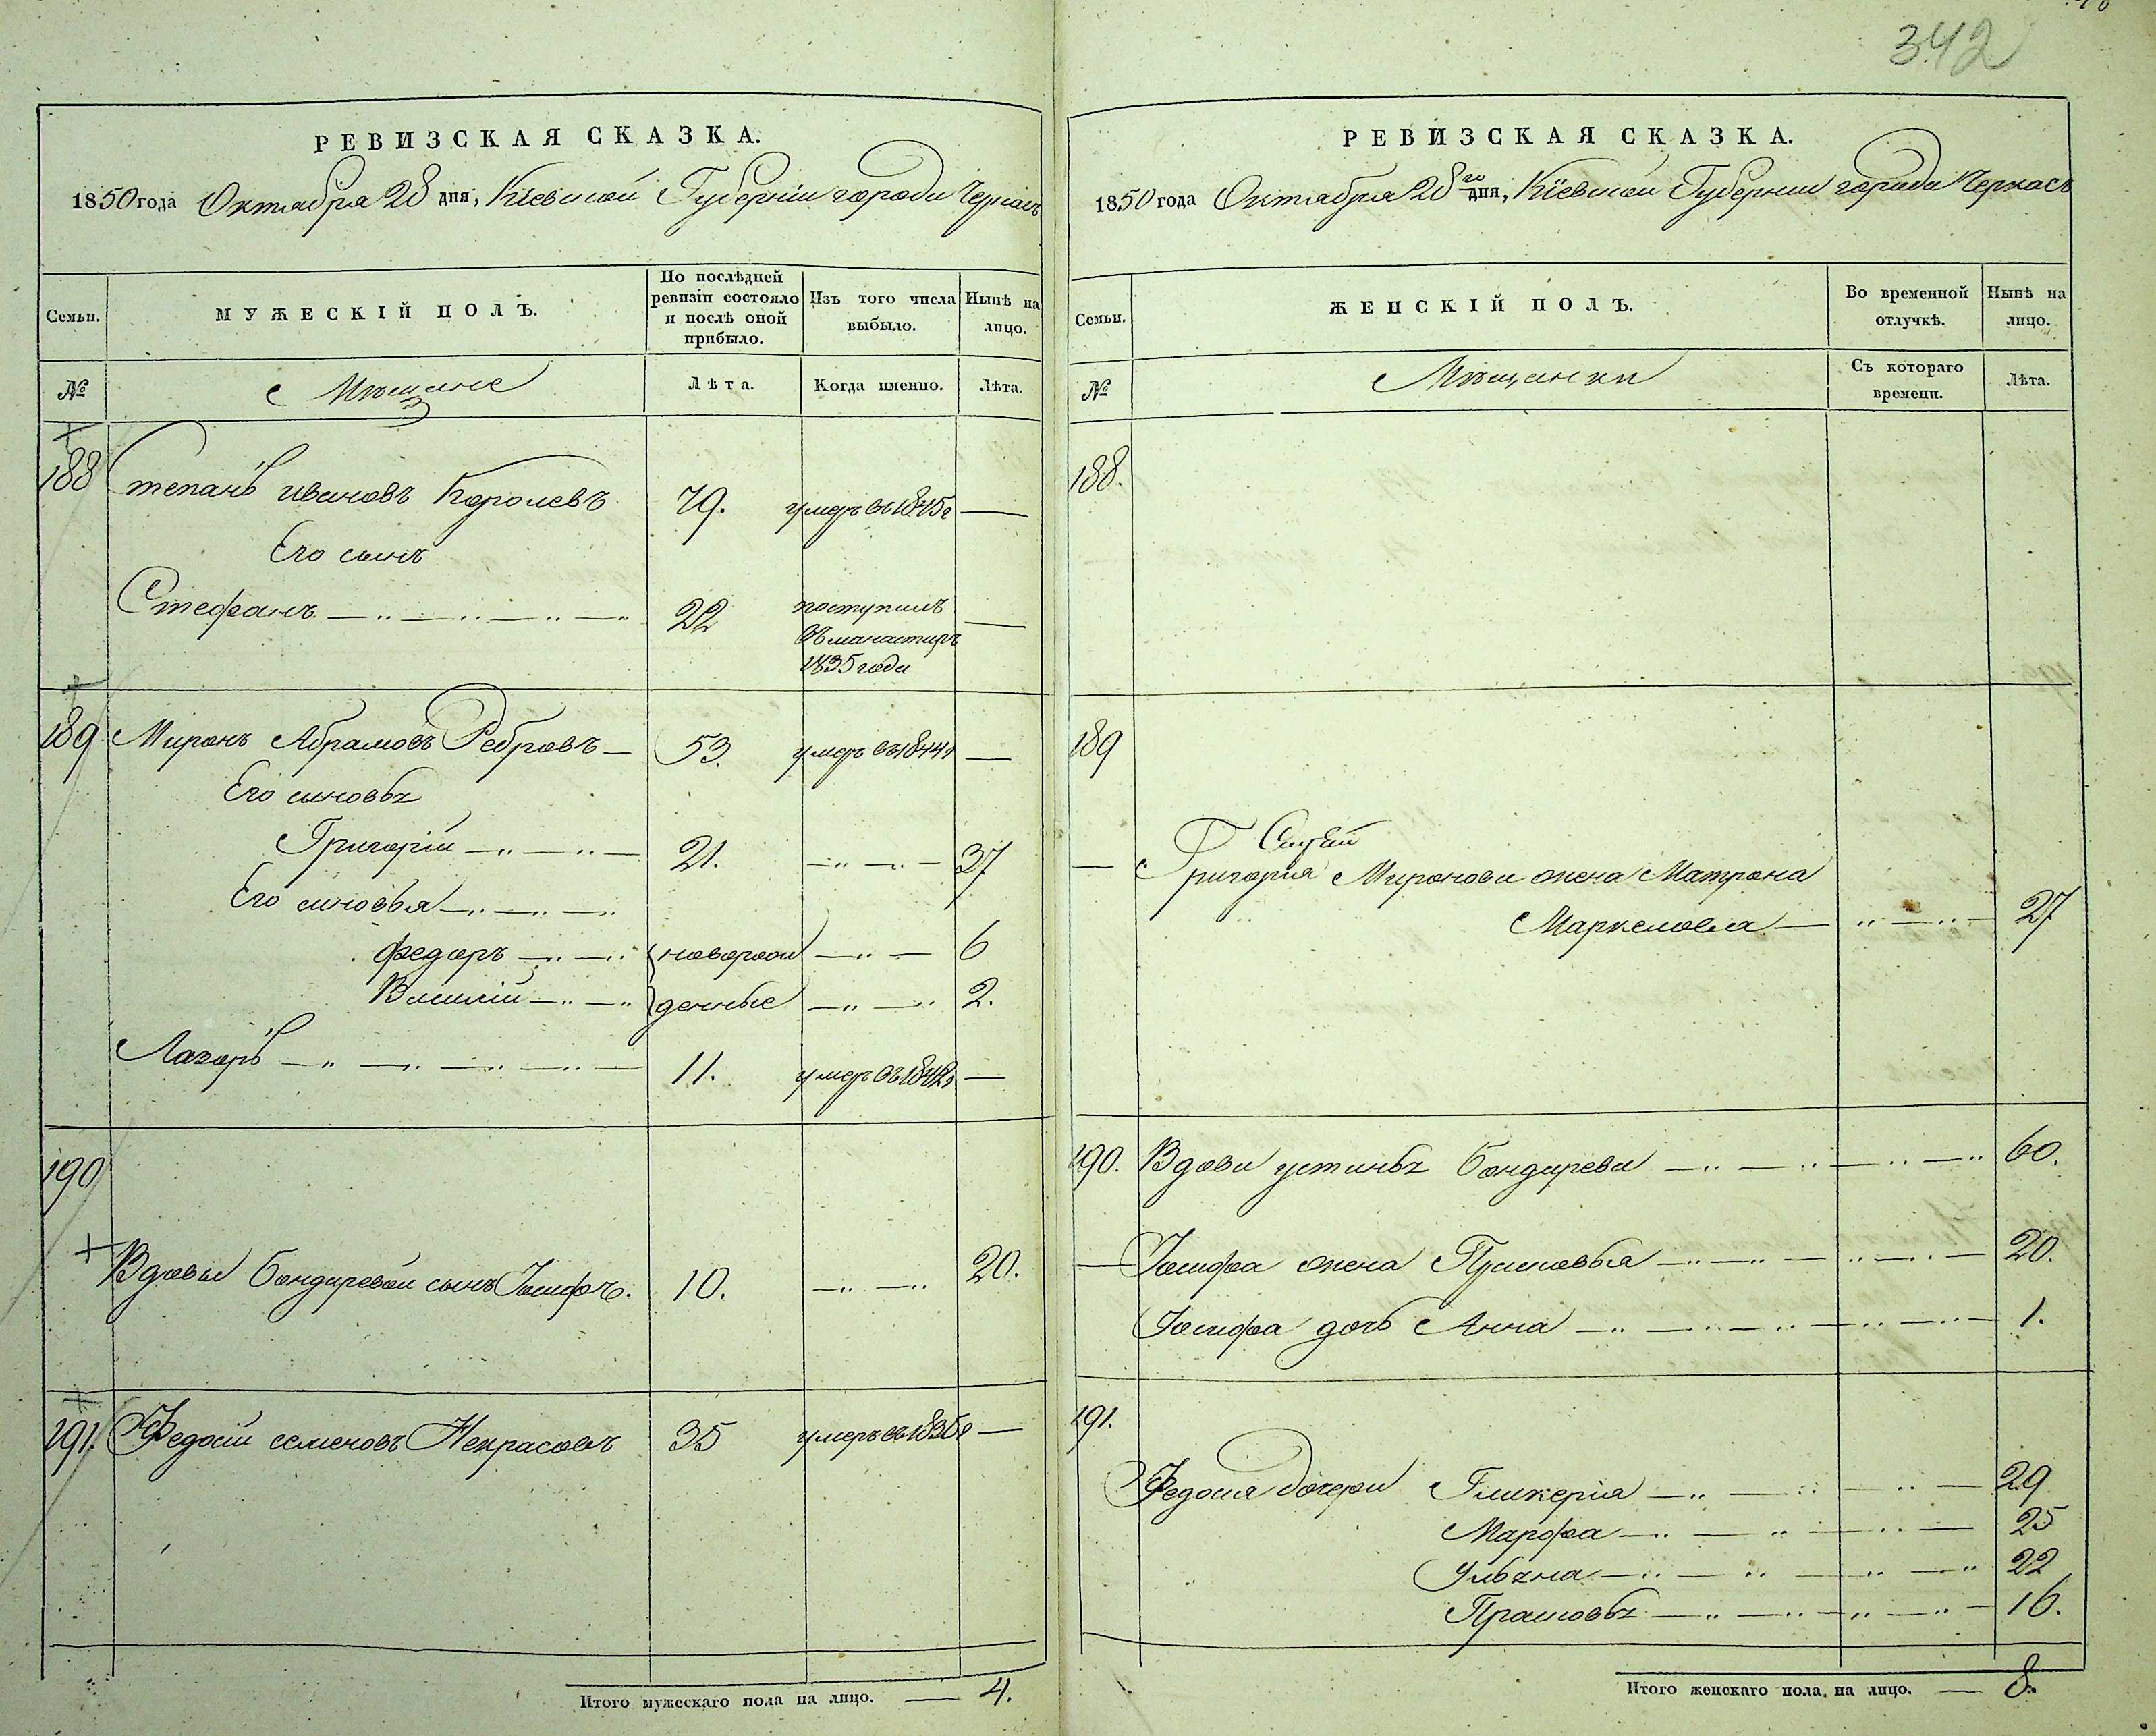 342
РЕВИЗСКАЯ СКАЗКА.
1850 года Октября 28 дня, Кіевской Губерніи города Черкасъ
Семьи.
МУЖЕСКІЙ ПОЛЪ.
По послѣдней ревизіи состояло и послѣ оной прибыло.
Изъ того числа выбыло.
Нынѣ на лицо.
№
Мѣщане
Лѣта.
Когда именно.
Лѣта.
188 Степанъ ивановъ Королевъ 79. умеръ въ 1845 г —
Его сынъ
Стефанъ 22 поступилъ
въ манастиръ
1835 года
189 Миронъ Абрамовъ Ребровъ — 53. умеръ въ 1844 г —
Его сыновья
Григорій 21. 37
Его сыновья
федоръ новорож 6
Василій денные 2.
Лазорь 11. умеръ въ 1842 г —
190
Вдовы Бондаревой сынъ Іосифъ. 10. 20.
191. Федосій семеновъ Некрасовъ 35 умеръ въ 1835 г —
Итого мужескаго пола на лицо. — 4.
РЕВИЗСКАЯ СКАЗКА.
1850 года Октября 28го дня, Кіевской Губерніи города Черкасъ
Семьи.
ЖЕНСКІЙ ПОЛЪ.
Во временной отлучкѣ.
Нынѣ на лицо.
№
Мѣщанки
Съ котораго времени.
Лѣта.
188.
189
— Григорія Миронова жена Матрона
Маркелова — 27
190. Вдова устинья Бондарева 60.
— Іосифа жена Прасковья 20.
Іосифа дочь Анна 1.
191.
Федосія дочери Гликерія 29
Марфа 25
Ульяна 22
Прасковья 16.
Итого женскаго пола, на лицо. — 8.